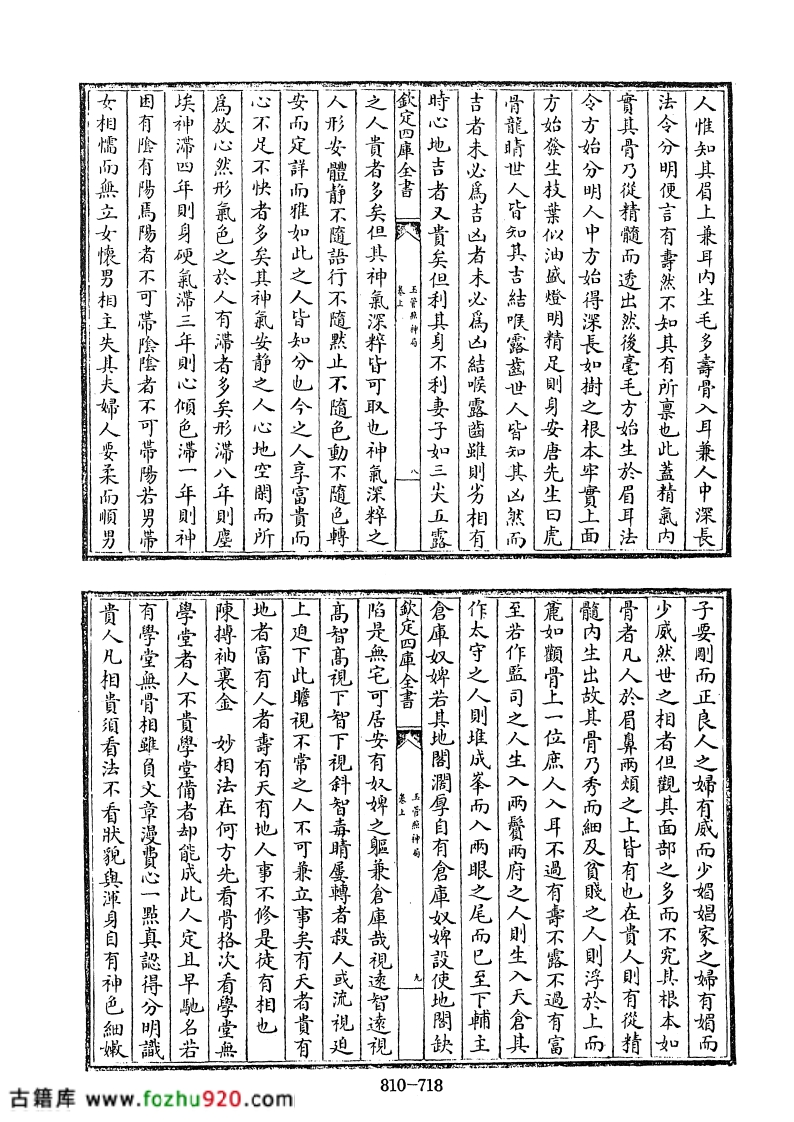 人惟知其眉上兼耳内生毛多壽骨入耳兼人中深長
法令分明便言有壽然不知其有所禀也此蓋精氣内
實其骨乃從精髓而透出然後毫毛方始生於眉耳法
令方始分明人中方始得深長如樹之根本牢實上面
方始發生枝葉似油盛燈明精足則身安唐先生曰虎
骨龍睛世人皆知其吉結喉露齒世人皆知其凶然而
吉者未必爲吉凶者未必爲凶結喉露齒雖則劣相有
時心地吉者又貴矣但利其身不利妻子如三尖五露
欽定四庫全書
玉管照神局
卷上
八
之人貴者多矣但其神氣深粹皆可取也神氣深粹之
人形安體静不隨語行不隨黙止不隨色動不隨色轉
安而定詳而雅如此之人皆知分也今之人享富貴而
心不足不快者多矣其神氣安静之人心地空闊而所
爲放心然形氣色之於人有滯者多矣形滯八年則塵
埃神滯四年則身硬氣滯三年則心傾色滯一年則神
困有陰有陽焉陽者不可帶陰陰者不可帶陽若男帶
女相懦而無立女懷男相主失其夫婦人要柔而順男
子要剛而正良人之婦有威而少媚娼家之婦有媚而
少威然世之相者但觀其面部之多而不究其根本如
骨者凡人於眉鼻兩頰之上皆有也在貴人則有從精
髓内生出故其骨乃秀而細及貧賤之人則浮於上而
麄如顴骨上一位庶人入耳不過有壽不露不過有富
至若作監司之人生入兩鬢兩府之人則生入天倉其
作太守之人則堆成峯而入兩眼之尾而已至下輔主
倉庫奴婢若其地閣濶厚自有倉庫奴婢設使地閣缺
欽定四庫全書
玉管照神局
卷上
九
陷是無宅可居安有奴婢之軀兼倉庫哉視逺智逺視
髙智髙視下智下視斜智毒睛屢轉者殺人或流視迫
上迫下此瞻視不常之人不可兼立事矣有天者貴有
地者富有人者壽有天有地人事不修是徒有相也
陳摶袖裏金 妙相法在何方先看骨格次看學堂無
學堂者人不貴學堂備者却能成此人定且早馳名若
有學堂無骨相雖負文章漫費心一點真認得分明識
貴人凡相貴須看法不看狀貌與渾身自有神色細嫩
810-718
古籍库 www.fozhu920.com